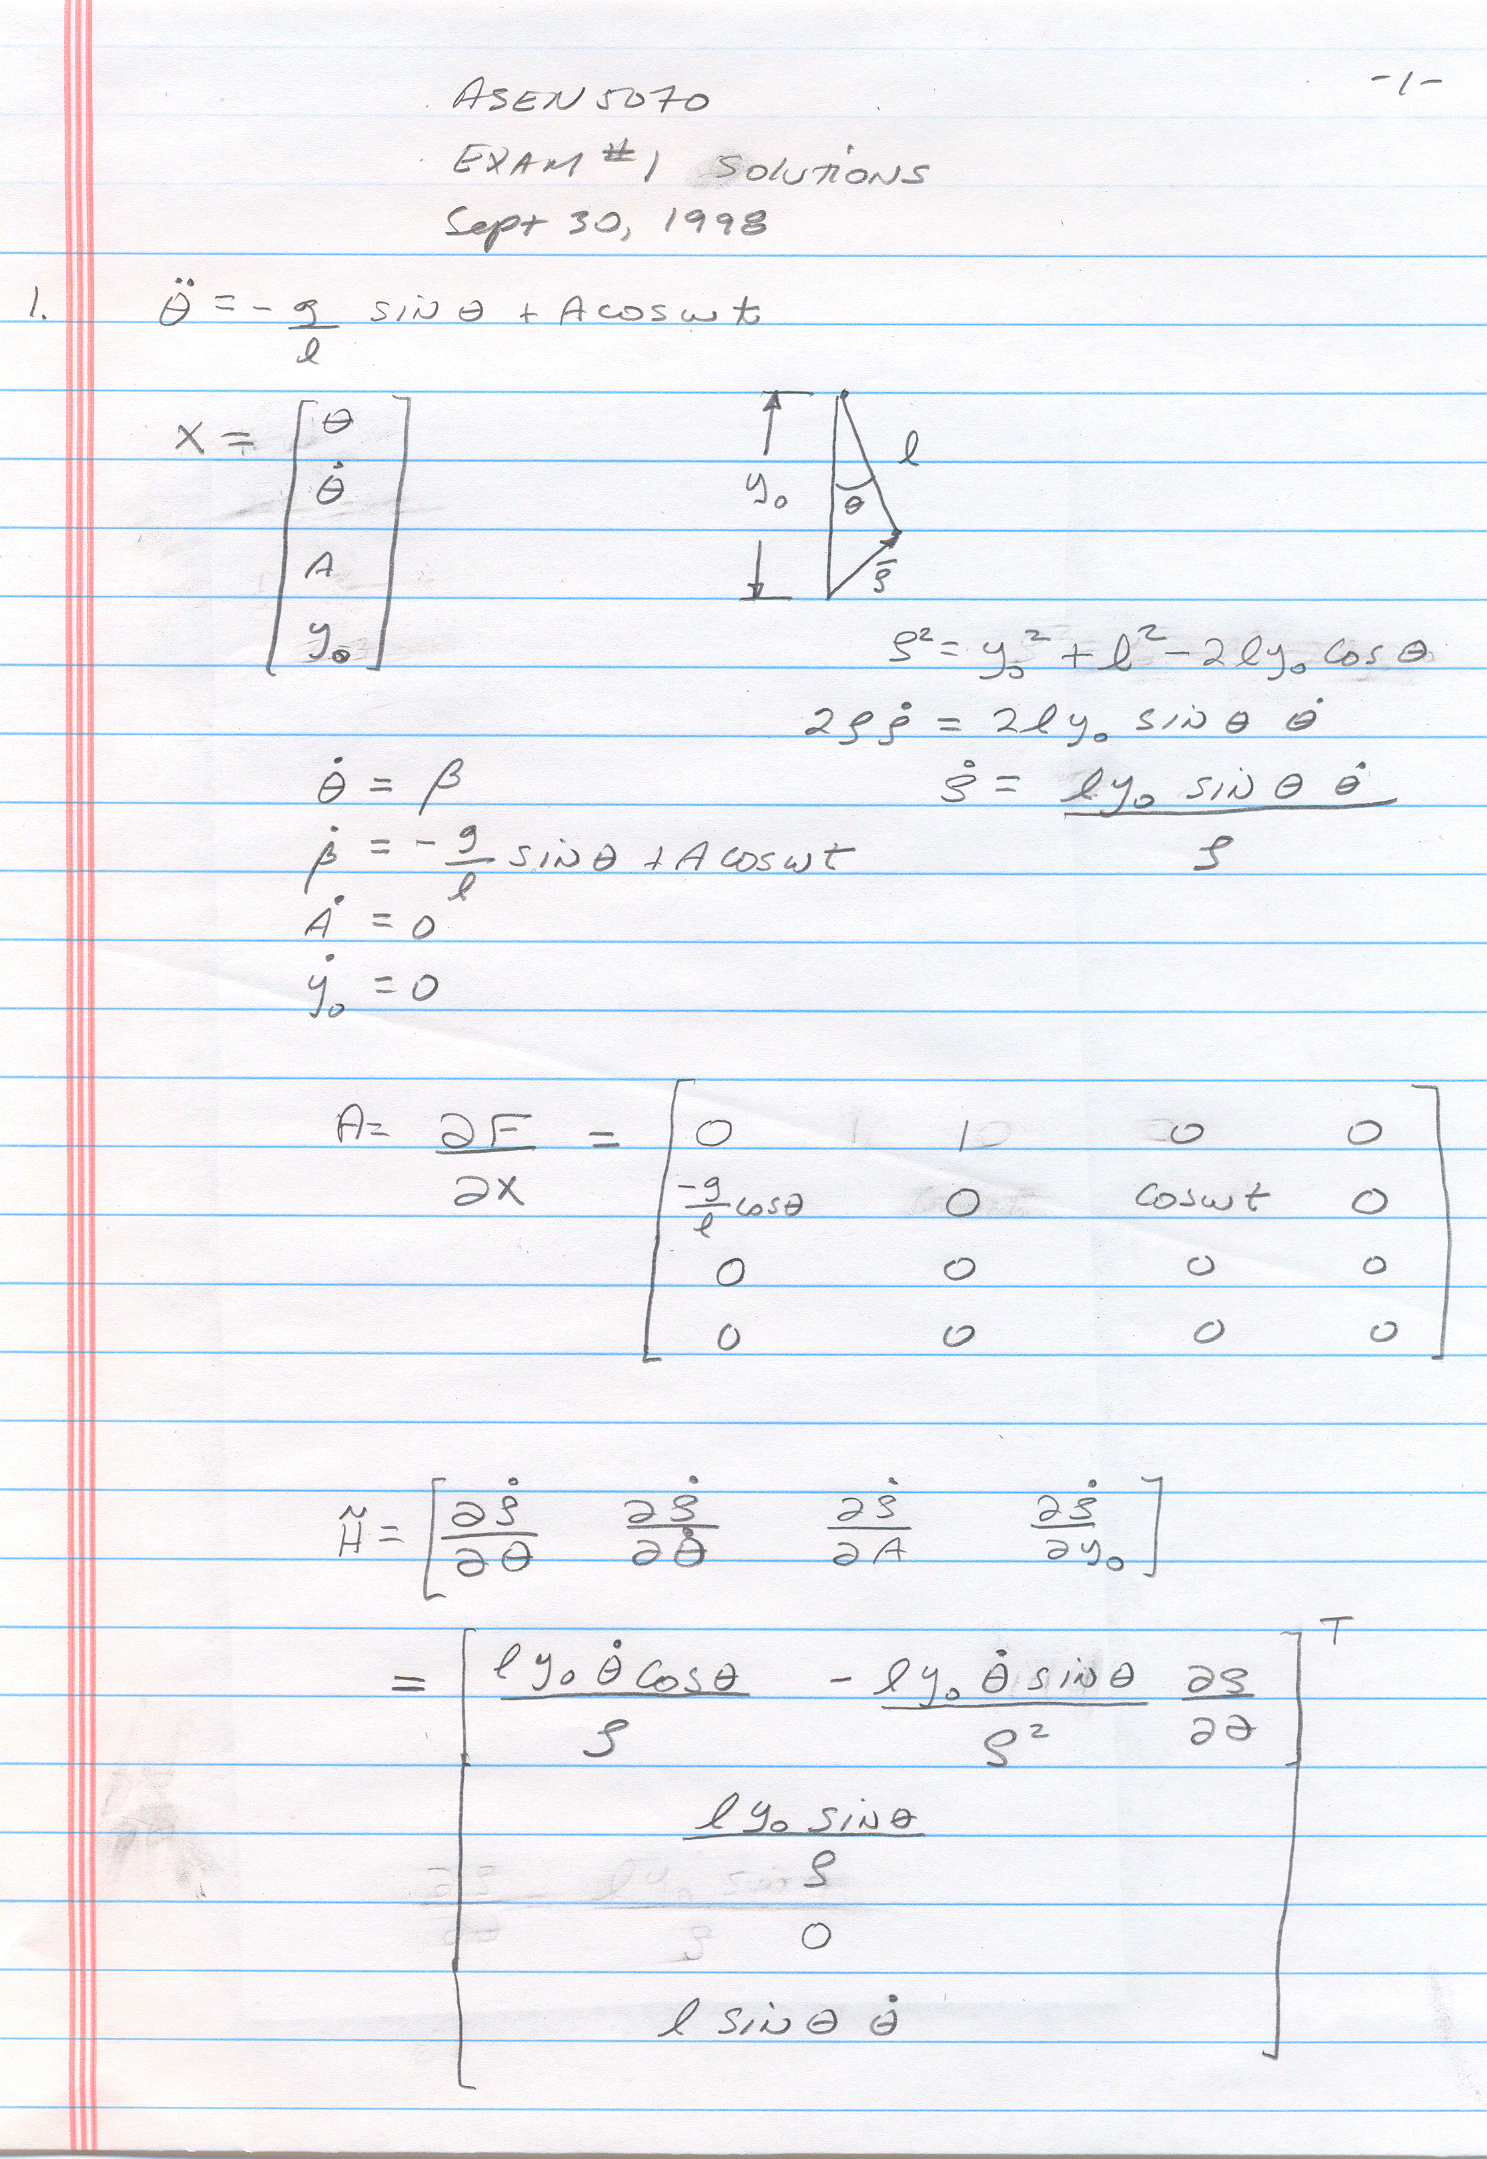 -1-
ASEN 5070
EXAM #1 SOLUTIONS
Sept 30, 1998
1. θ̈ = - g/l sin θ + A cos ωt
X = [ θ
θ̇
A
y₀ ]
y₀ θ l ρ̄
ρ² = y₀² + l² - 2ly₀ cos θ
2ρρ̇ = 2ly₀ sin θ θ̇
ρ̇ = ly₀ sin θ θ̇ / ρ
θ̇ = β
β̇ = - g/l sin θ + A cos ωt
Ȧ = 0
ẏ₀ = 0
A = ∂F/∂X = [ 0 1 0 0
-g/l cos θ 0 cos ωt 0
0 0 0 0
0 0 0 0 ]
H̃ = [ ∂ρ̇/∂θ ∂ρ̇/∂θ̇ ∂ρ̇/∂A ∂ρ̇/∂y₀ ]
= [ ly₀ θ̇ cos θ / ρ - ly₀ θ̇ sin θ / ρ² ∂ρ/∂θ
ly₀ sin θ / ρ
0
l sin θ θ̇ ]ᵀ